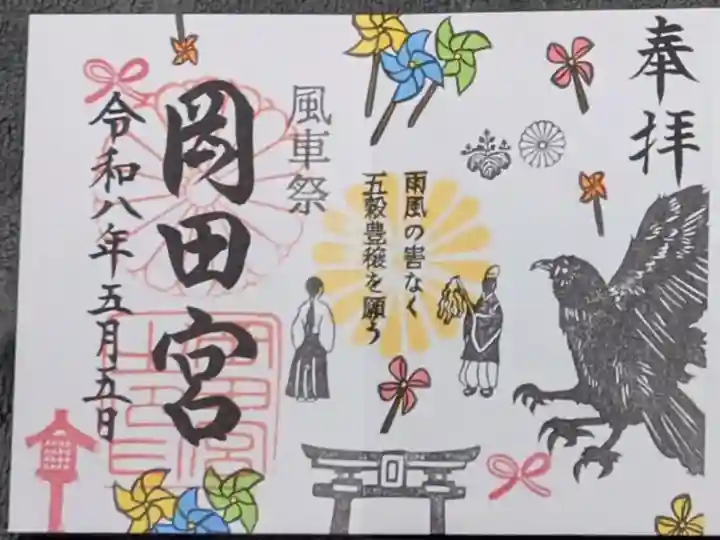 奉拝
雨風の害なく
五穀豊穣を願う
風車祭
岡田宮
令和八年五月五日